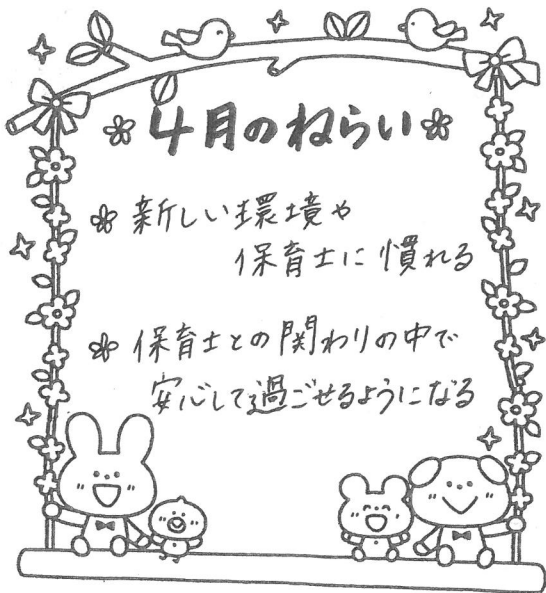 4月のねらい
新しい環境や
保育士に慣れる
保育士との関わりの中で
安心して過ごせるようになる